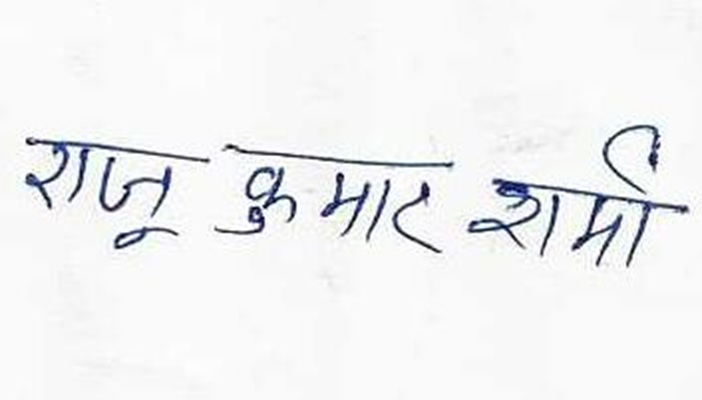 राजू कुमार शर्मा